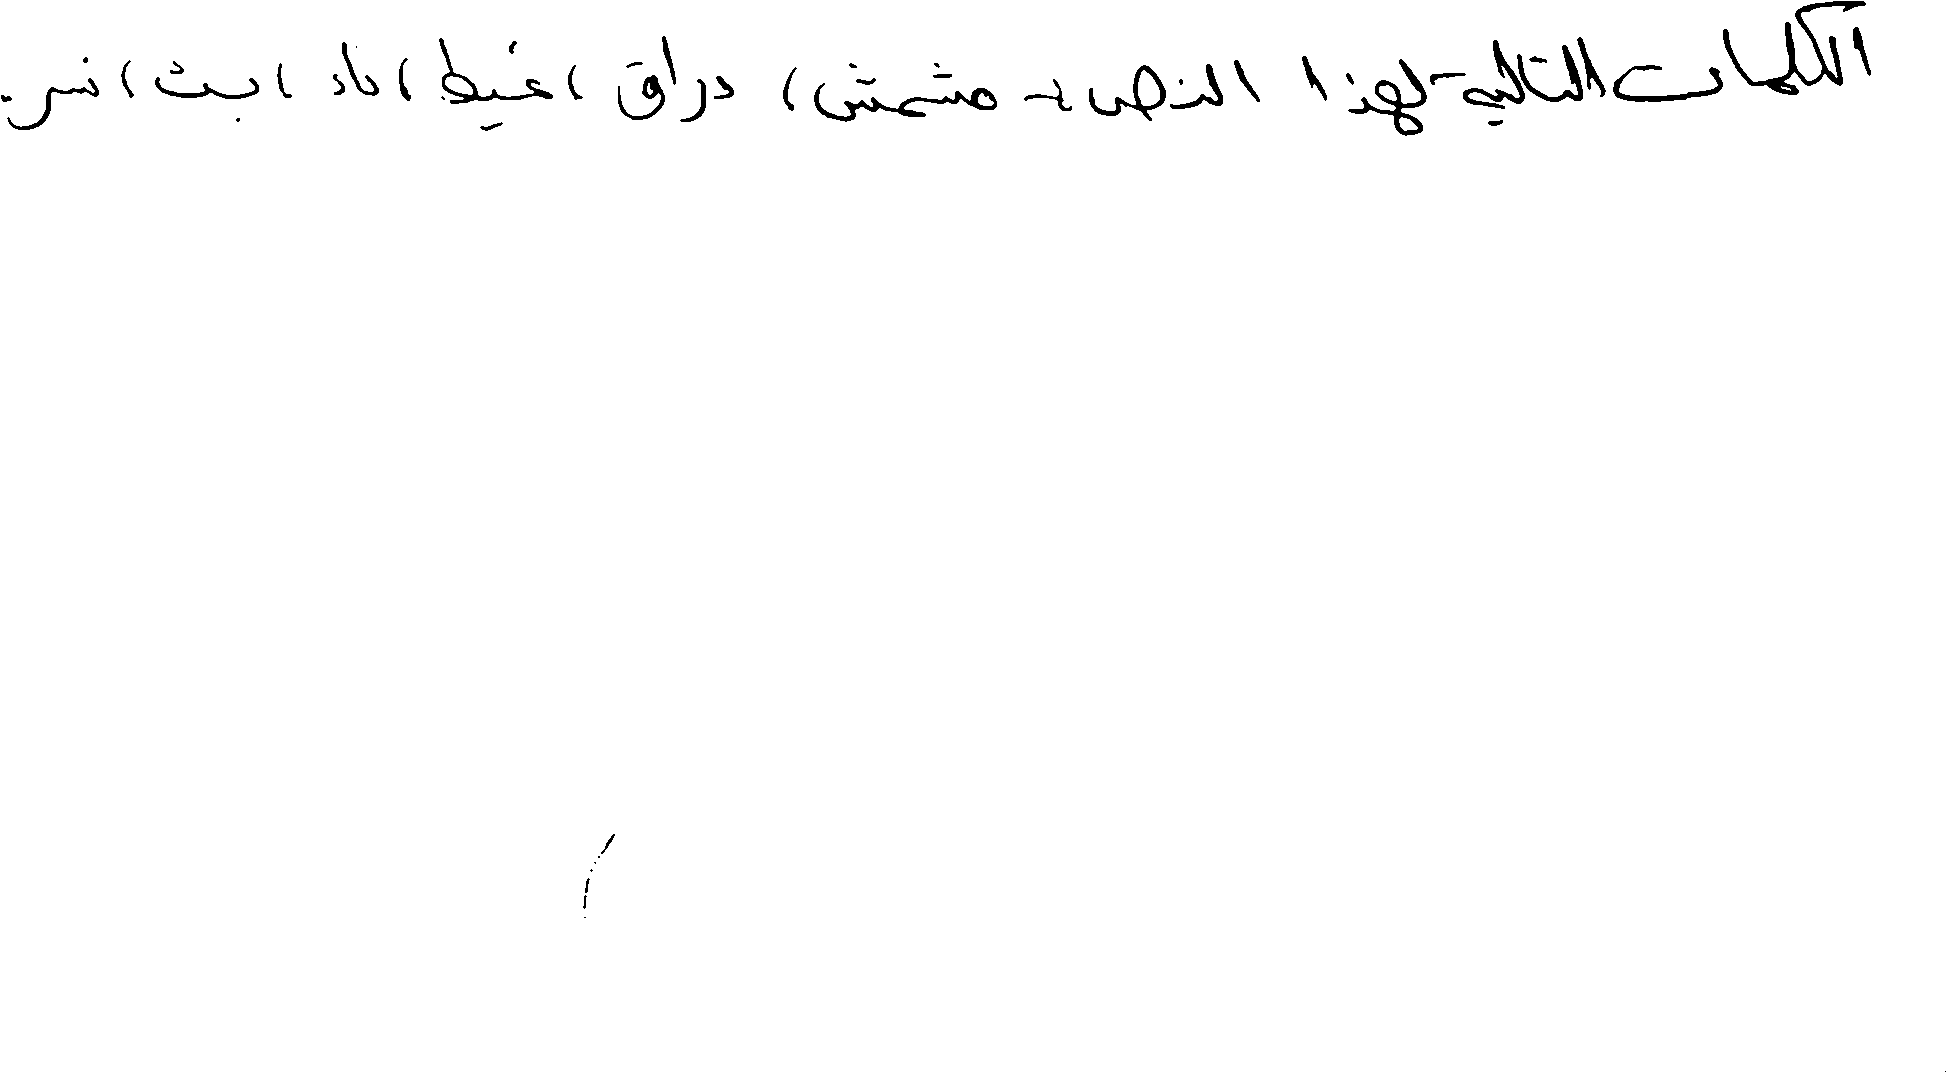 الكلمات التالية لهذا النص: مشمش، دراق، غيط، بث، نسر.